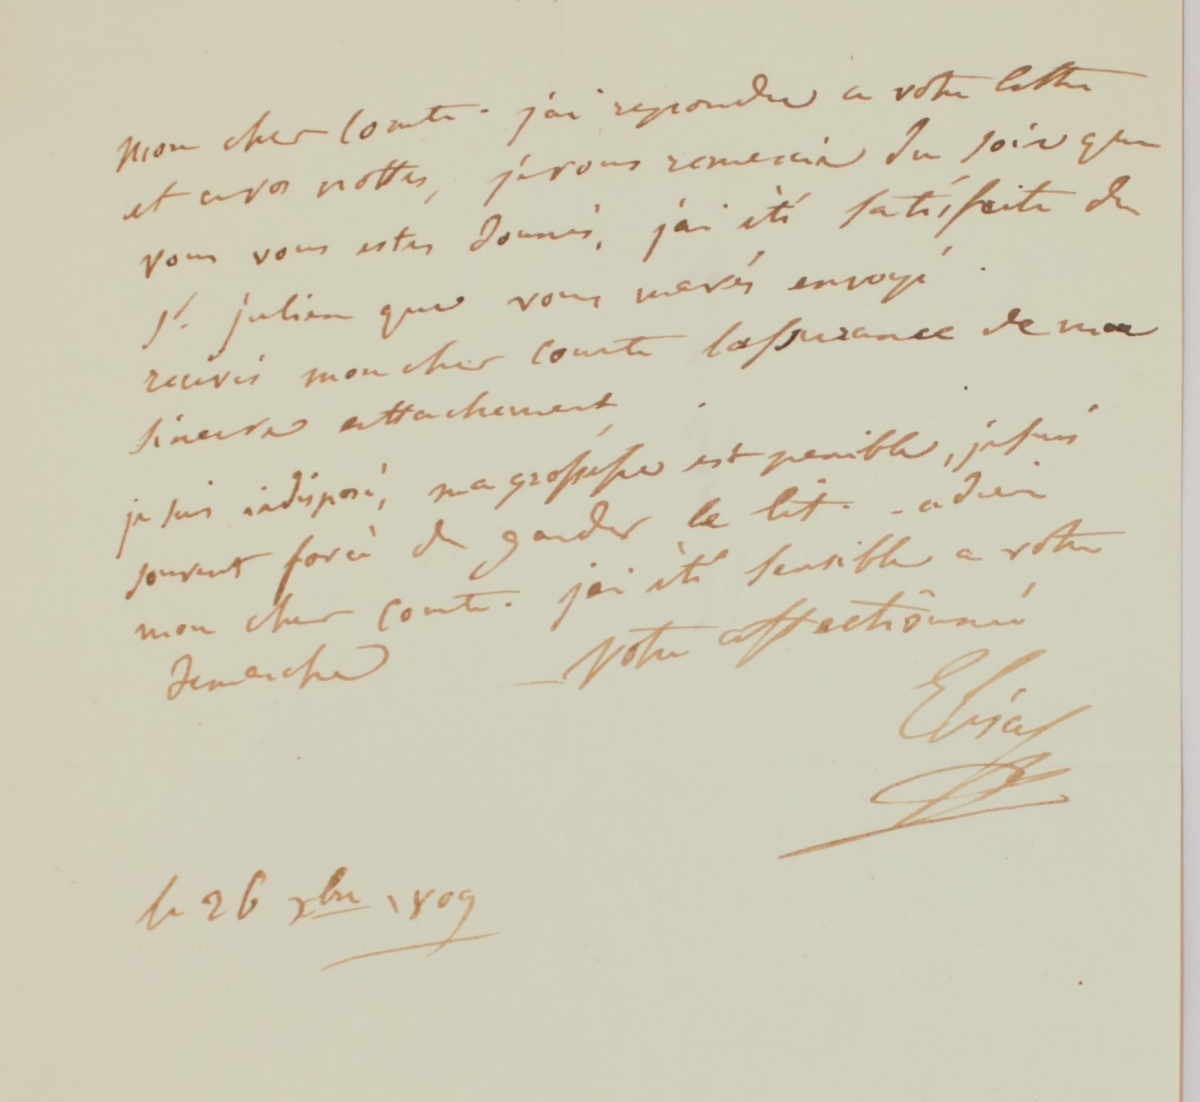 mon cher comte. j'ai repondre a votre lettre
et a vos nottes, je vous remercie du soin que
vous vous estes donnés, j'ai été satisfaite du
St. julien que vous mavés envoyé.
recevés mon cher comte lassurance de mon
sincere attachement.
je suis indisposé, ma grossesse est penible, je suis
souvent forcé de garder le lit. - adieu
mon cher comte. j'ai été sensible a votre
demarche
votre affectionné
Elisa
le 26 xbre 1809